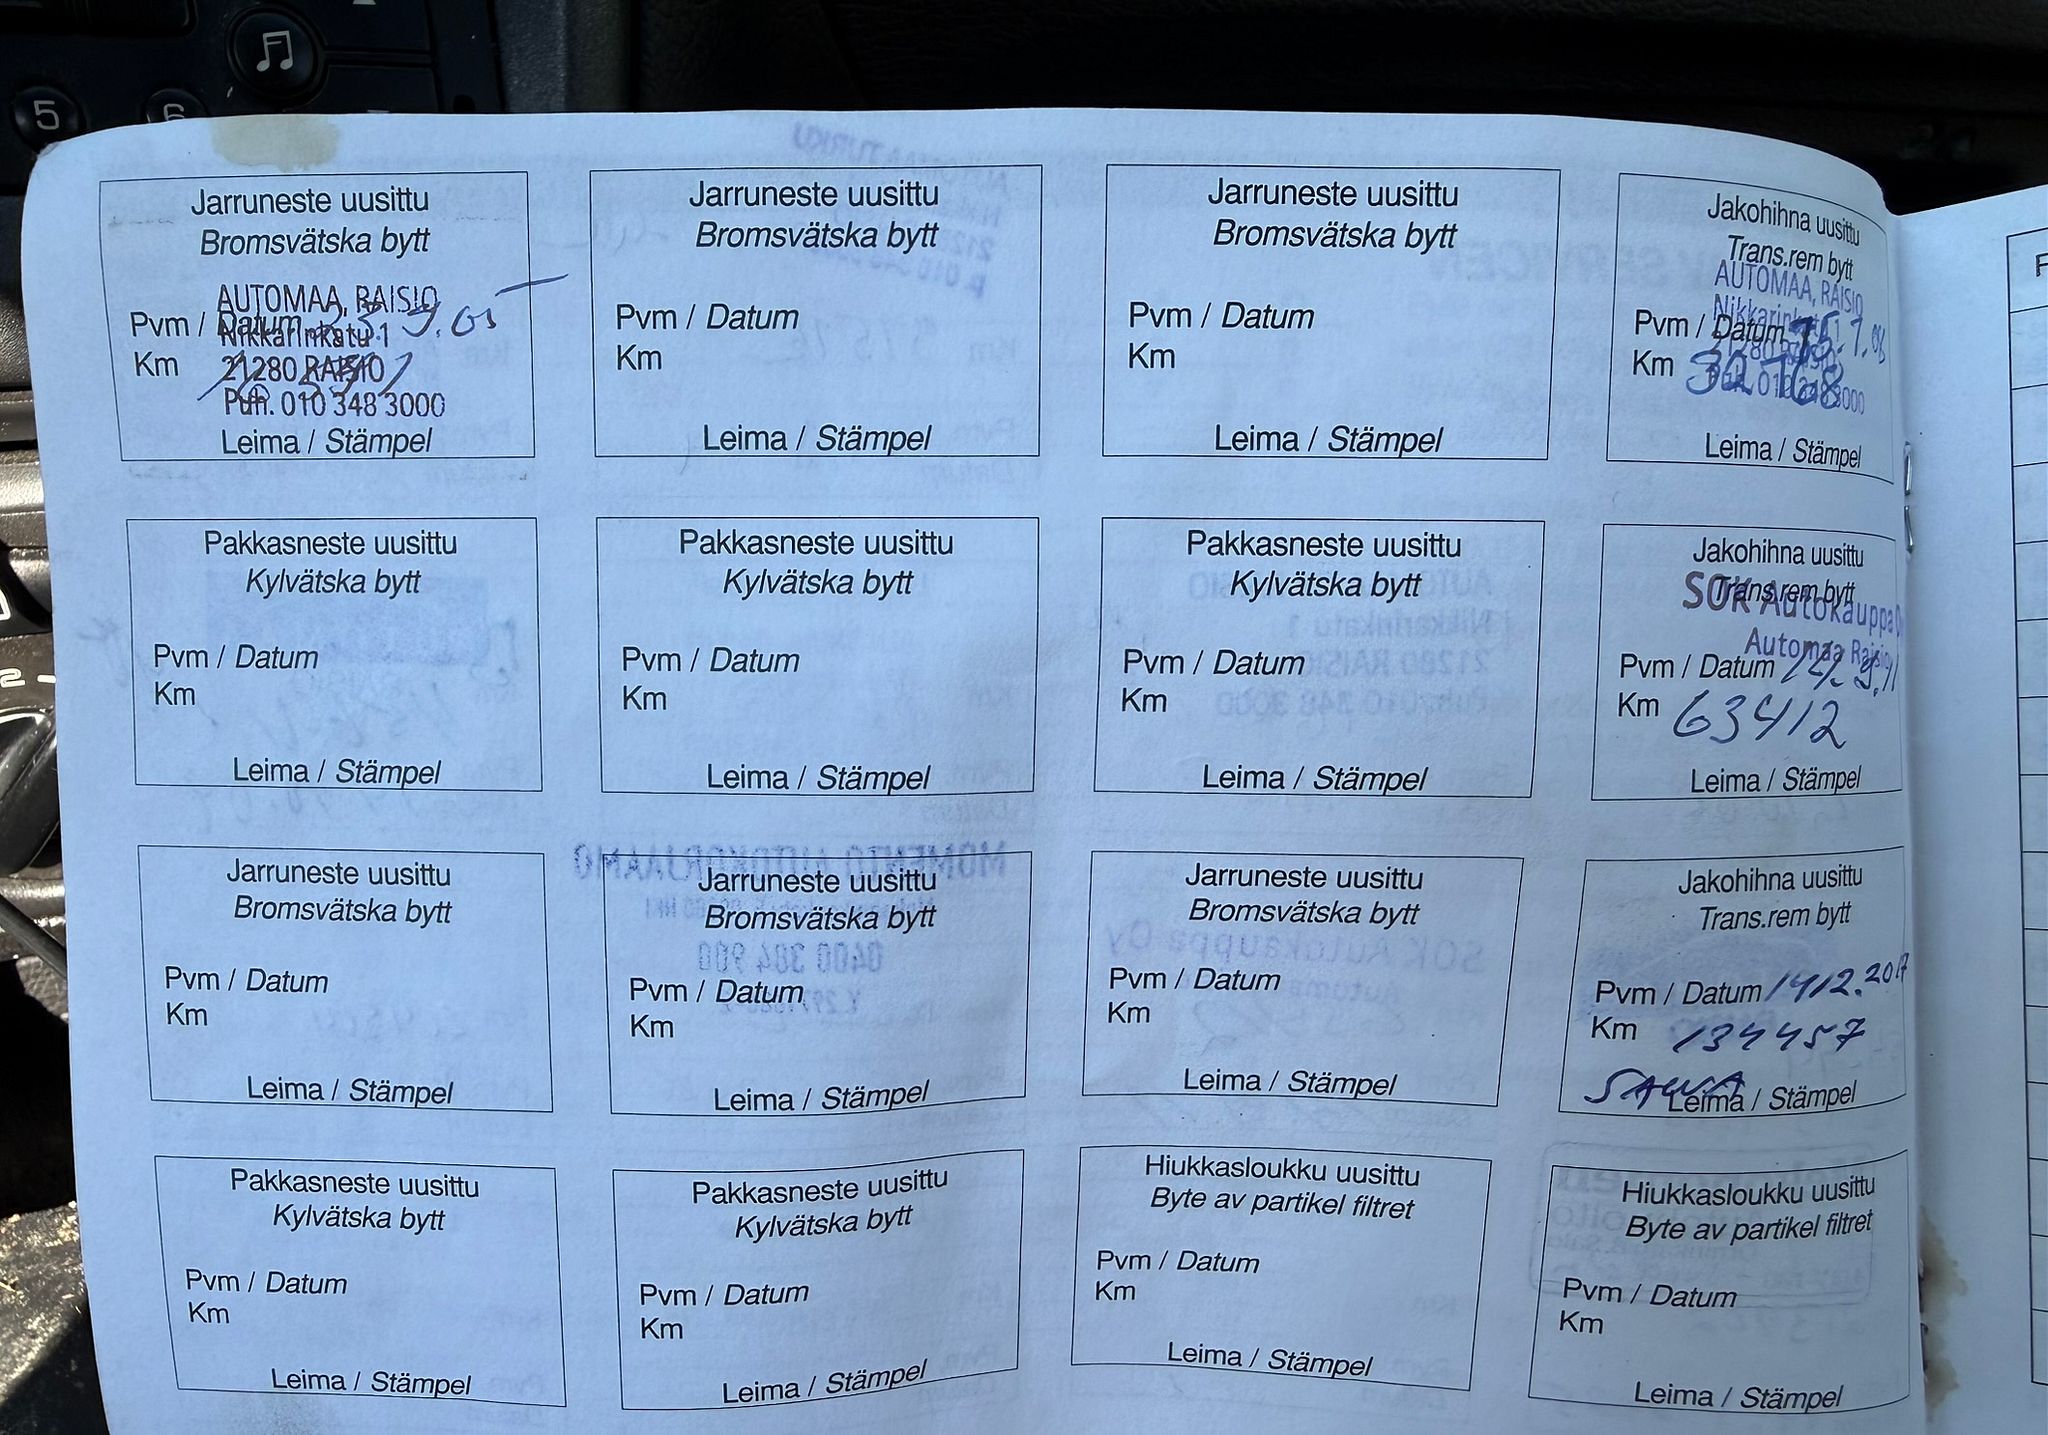 5
6
Jarruneste uusittu
Bromsvätska bytt
AUTOMAA, RAISIO
Pvm / Datum 23.9.05
Nikkarinkatu 1
Km
21280 RAISIO
Puh. 010 348 3000
Leima / Stämpel
Jarruneste uusittu
Bromsvätska bytt
Pvm / Datum
Km
Leima / Stämpel
Jarruneste uusittu
Bromsvätska bytt
Pvm / Datum
Km
Leima / Stämpel
Jakohihna uusittu
Trans.rem bytt
AUTOMAA, RAISIO
Nikkarinkatu 1
Pvm / Datum 15.7.08
21280 RAISIO
Km 32768
Puh. 010 348 3000
Leima / Stämpel
Pakkasneste uusittu
Kylvätska bytt
Pvm / Datum
Km
Leima / Stämpel
Pakkasneste uusittu
Kylvätska bytt
Pvm / Datum
Km
Leima / Stämpel
Pakkasneste uusittu
Kylvätska bytt
Pvm / Datum
Km
Leima / Stämpel
Jakohihna uusittu
Trans.rem bytt
SOK Autokauppa O
Automaa Raisio
Pvm / Datum 14.9.11
Km 63412
Leima / Stämpel
Jarruneste uusittu
Bromsvätska bytt
Pvm / Datum
Km
Leima / Stämpel
Jarruneste uusittu
Bromsvätska bytt
Pvm / Datum
Km
Leima / Stämpel
Jarruneste uusittu
Bromsvätska bytt
Pvm / Datum
Km
Leima / Stämpel
Jakohihna uusittu
Trans.rem bytt
Pvm / Datum 1412.2017
Km 134457
Leima / Stämpel
Pakkasneste uusittu
Kylvätska bytt
Pvm / Datum
Km
Leima / Stämpel
Pakkasneste uusittu
Kylvätska bytt
Pvm / Datum
Km
Leima / Stämpel
Hiukkasloukku uusittu
Byte av partikel filtret
Pvm / Datum
Km
Leima / Stämpel
Hiukkasloukku uusittu
Byte av partikel filtret
Pvm / Datum
Km
Leima / Stämpel